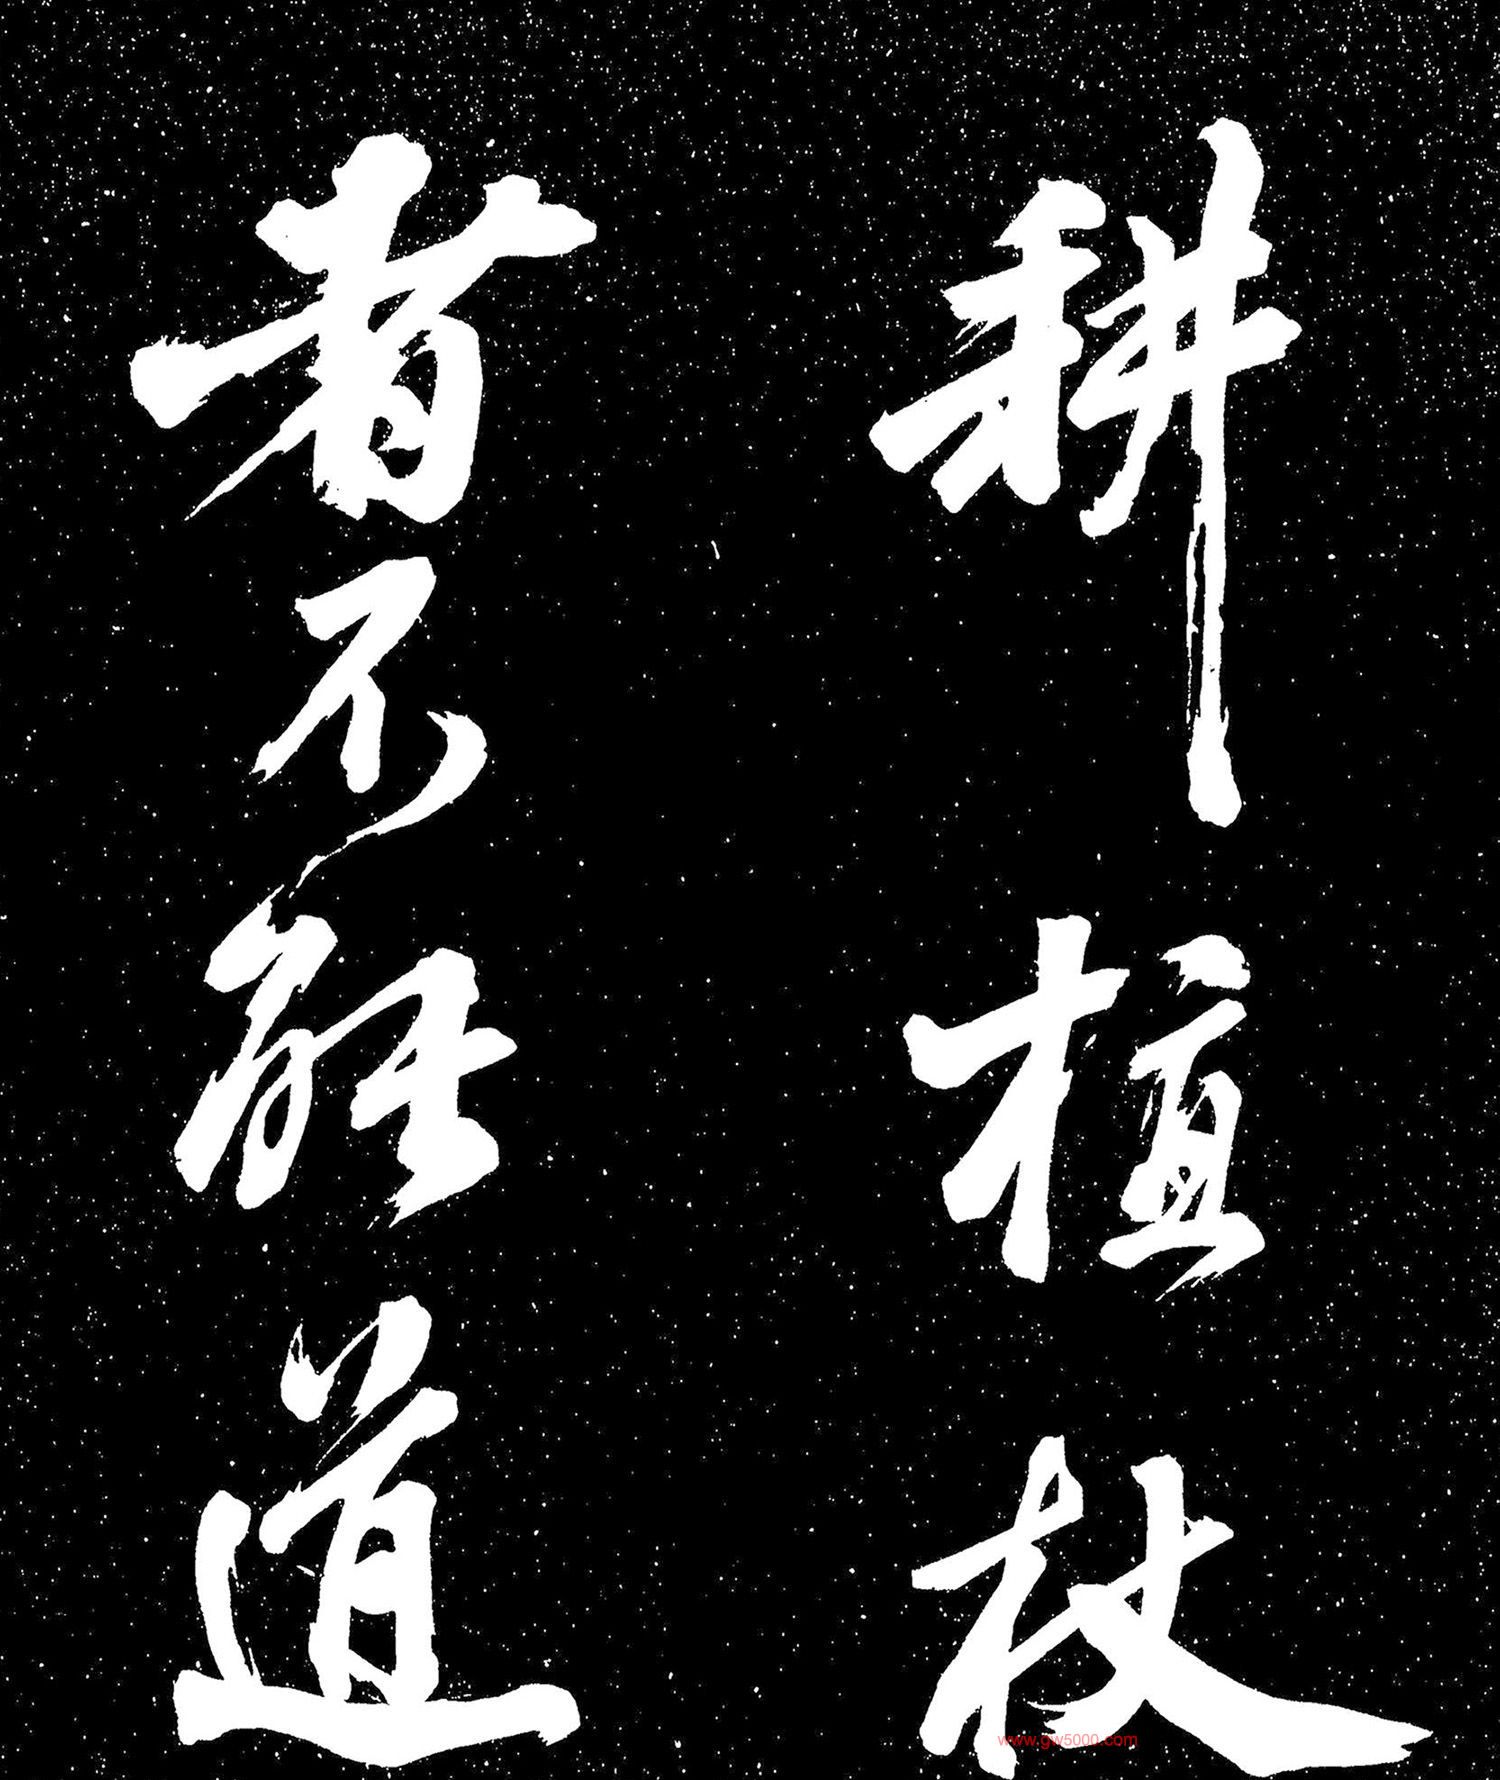 耕植杖
者不能道
www.gw5000.com